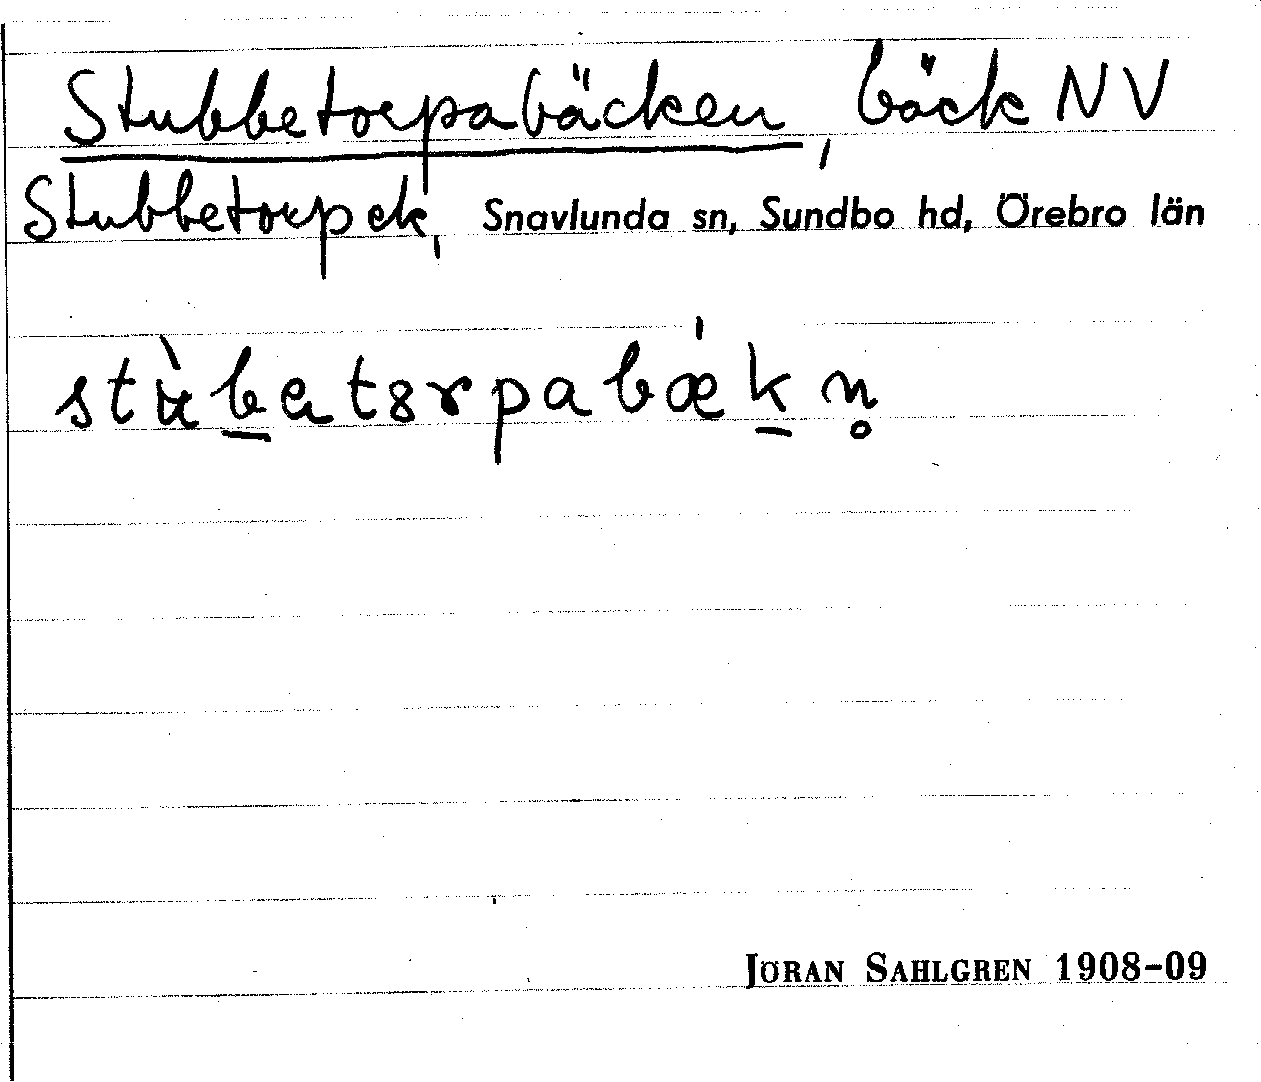 Stubbetorpabäcken, bäck NV
Stubbetorpek, Snavlunda sn, Sundbo hd, Örebro län
stu̇̀b̲ats̈rpabǽk̲n̥
JÖRAN SAHLGREN 1908–09